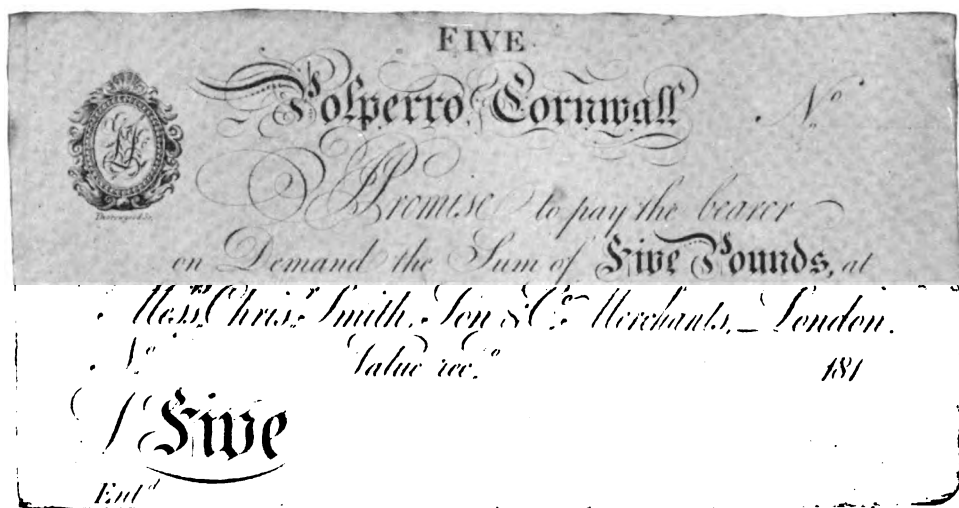 FIVE
Polperro Cornwall Nº
I Promise to pay the bearer
on Demand the Sum of Five Pounds, at
Messrs. Chrisr. Smith, Son & Co. Merchants, – London.
Nº Value recd. 181
£ Five
Entd